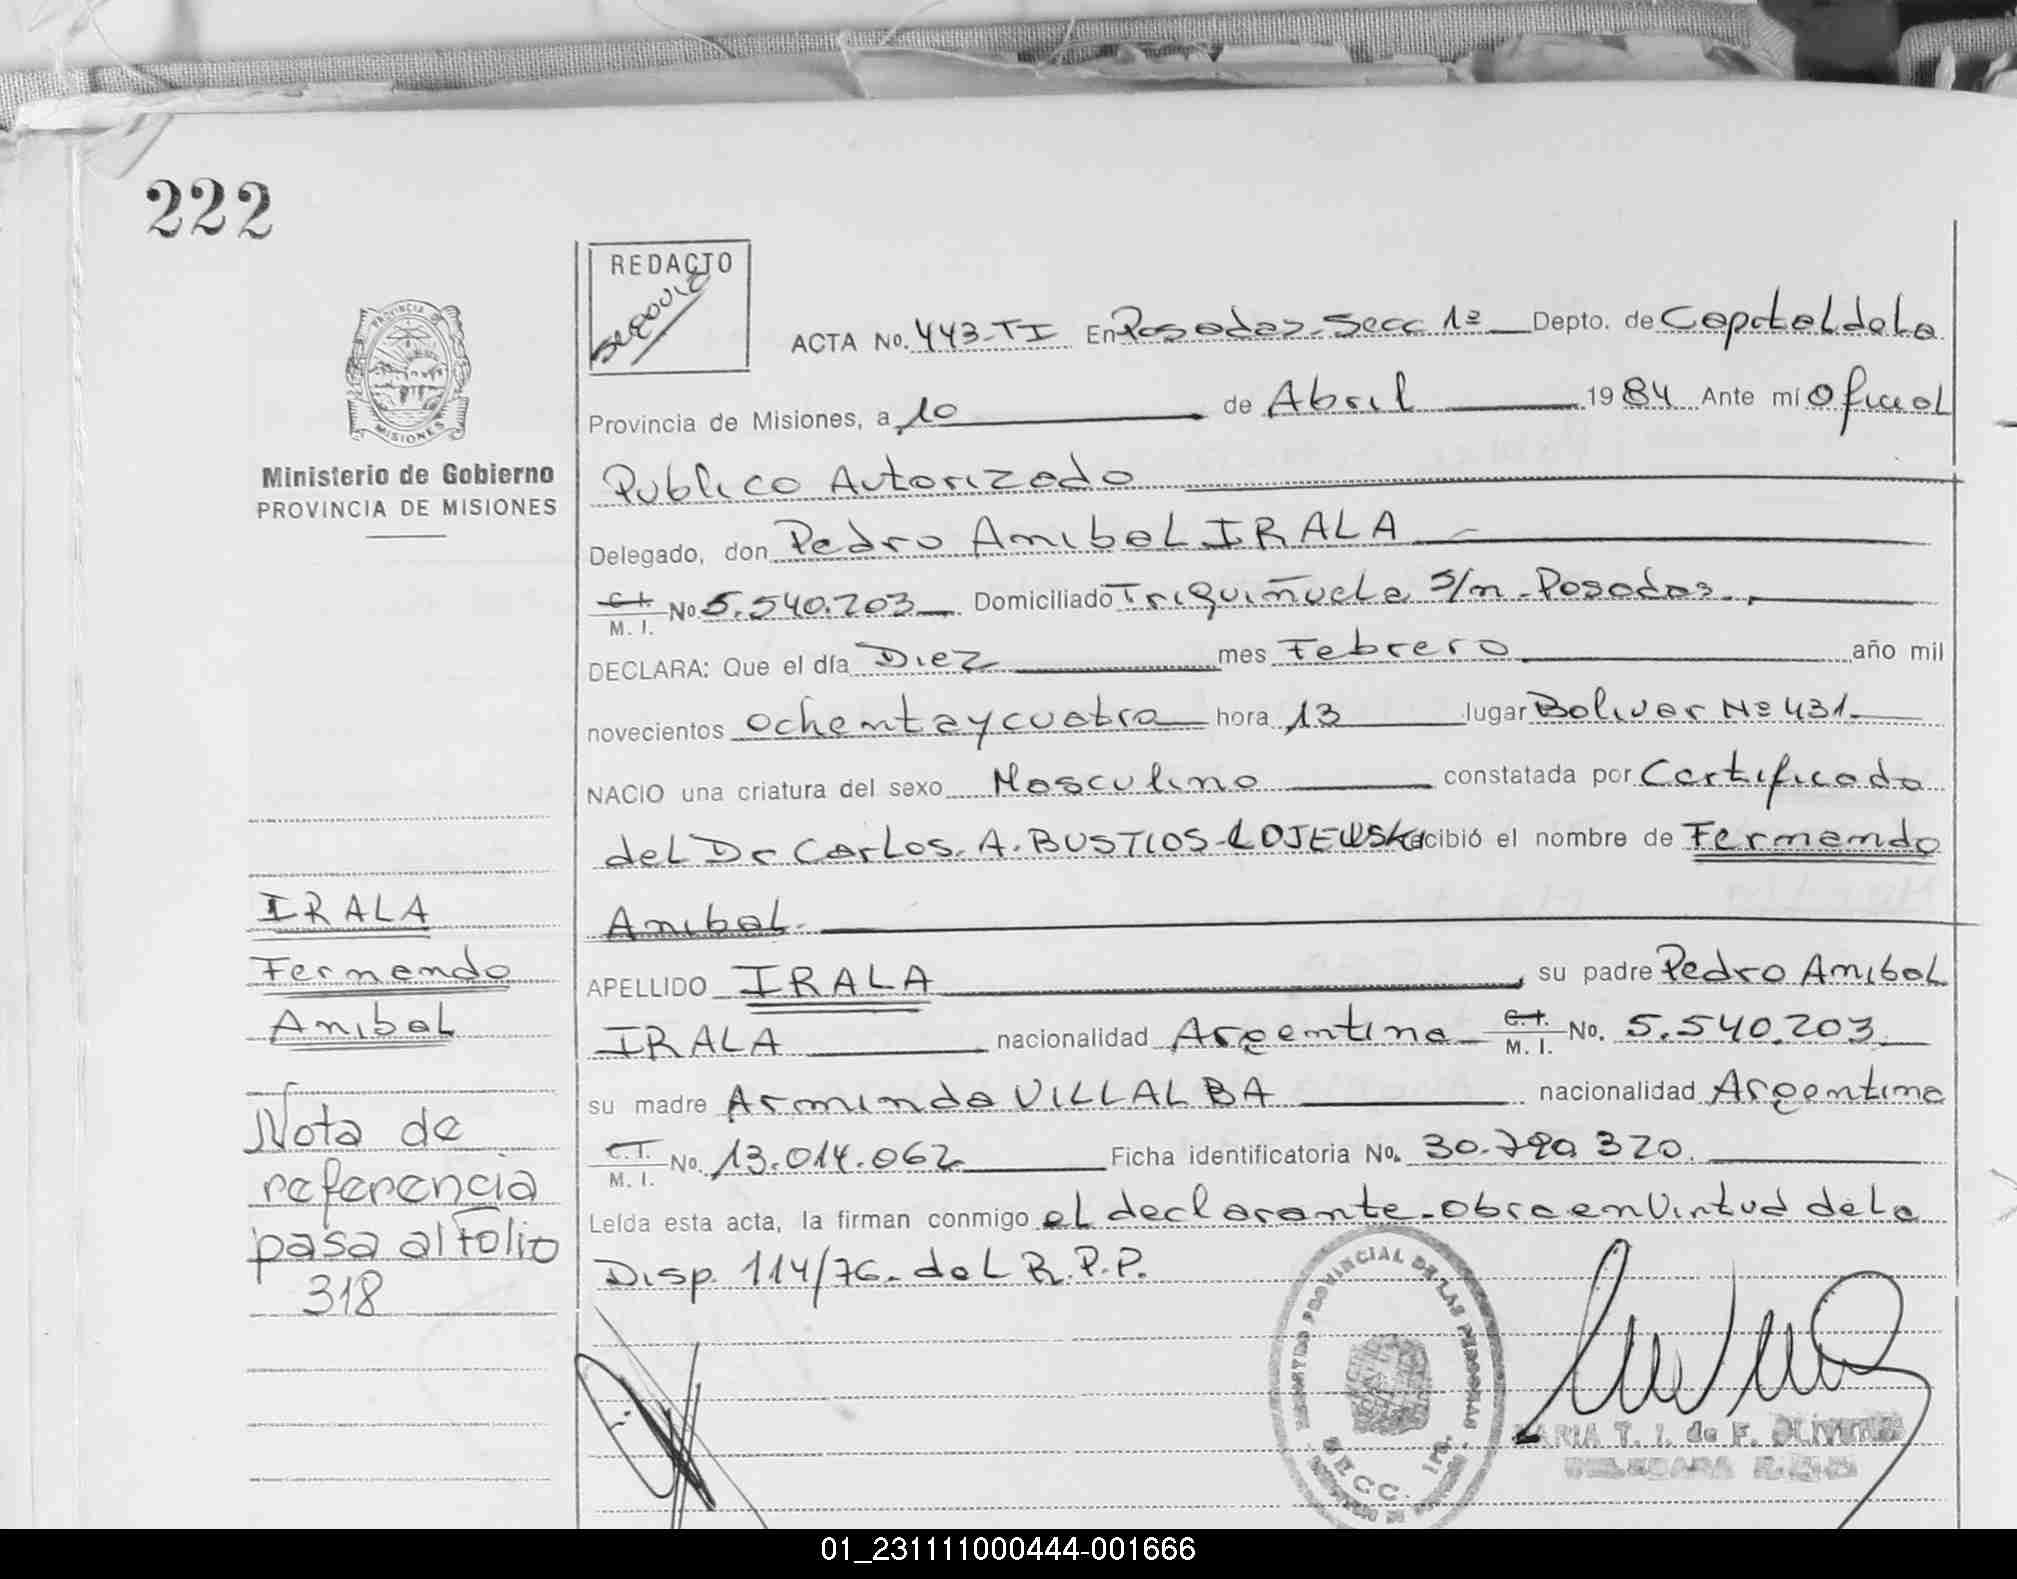 222
REDACTO
SEGOVIA
PROVINCIA DE
MISIONES
Ministerio de Gobierno
PROVINCIA DE MISIONES
ACTA No. 443-TI En Posadas-Secc 1º Depto. de Capital de la
Provincia de Misiones, a 10 de Abril 1984 Ante mí Oficial
Publico Autorizado
Delegado, don Pedro Anibal IRALA
C.I. M. I. No. 5.540.203 Domiciliado Triquiñuela S/n-Posadas.
DECLARA: Que el día Diez mes Febrero año mil
novecientos ochenta y cuatro hora 13 lugar Bolivar Nº 431
NACIO una criatura del sexo Masculino constatada por Certificado
del Dr Carlos. A. BUSTIOS-LOJEWSKI recibió el nombre de Fernando
Anibal.
APELLIDO IRALA, su padre Pedro Anibal
IRALA nacionalidad Argentina C.I. M. I. No. 5.540.203
su madre Arminda VILLALBA nacionalidad Argentina
C.I. M. I. No. 13.014.062 Ficha identificatoria No. 30.790.320.
Leída esta acta, la firman conmigo el declarante-Obra en Virtud de la
Disp. 114/76-del R.P.P.
IRALA
Fernando
Anibal
Nota de
referencia
pasa al Folio
318
PROVINCIAL DE LAS PERSONAS
SECC. 1ra.
MARIA T. I. de F. OLIVEIRA
01_231111000444-001666